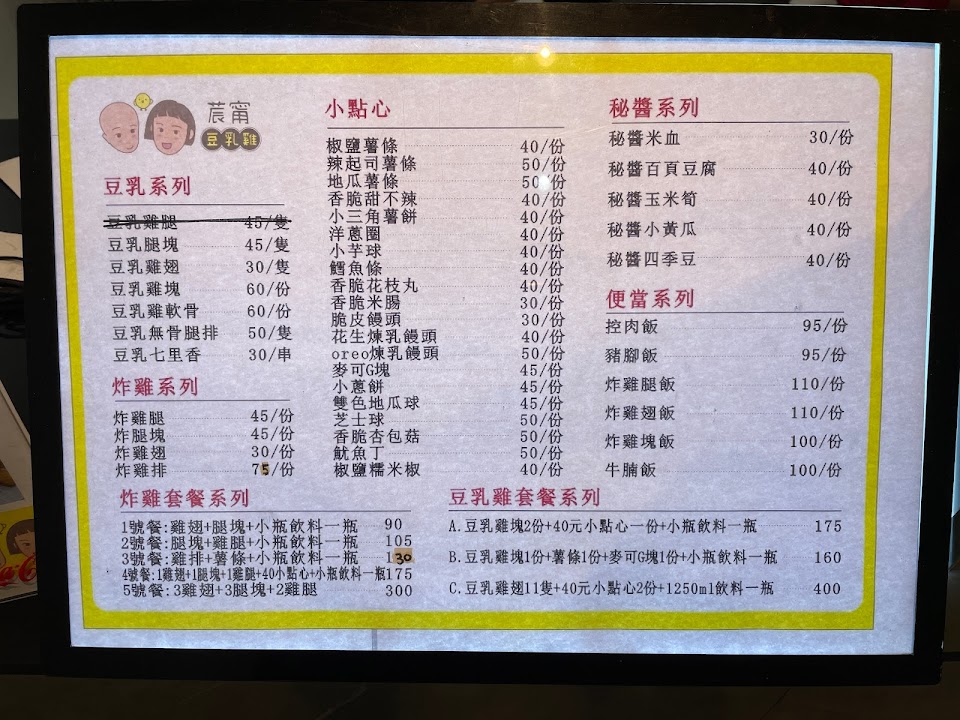 莀甯
豆乳雞
豆乳系列
豆乳雞腿 45/隻
豆乳腿塊 45/隻
豆乳雞翅 30/隻
豆乳雞塊 60/份
豆乳雞軟骨 60/份
豆乳無骨腿排 50/隻
豆乳七里香 30/串
炸雞系列
炸雞腿 45/份
炸腿塊 45/份
炸雞翅 30/份
炸雞排 75/份
小點心
椒鹽薯條 40/份
辣起司薯條 50/份
地瓜薯條 50/份
香脆甜不辣 40/份
小三角薯餅 40/份
洋蔥圈 40/份
小芋球 40/份
鱈魚條 40/份
香脆花枝丸 40/份
香脆米腸 30/份
脆皮饅頭 30/份
花生煉乳饅頭 40/份
oreo煉乳饅頭 50/份
麥可G塊 45/份
小蔥餅 45/份
雙色地瓜球 45/份
芝士球 50/份
香脆杏包菇 50/份
魷魚丁 50/份
椒鹽糯米椒 40/份
秘醬系列
秘醬米血 30/份
秘醬百頁豆腐 40/份
秘醬玉米筍 40/份
秘醬小黃瓜 40/份
秘醬四季豆 40/份
便當系列
控肉飯 95/份
豬腳飯 95/份
炸雞腿飯 110/份
炸雞翅飯 110/份
炸雞塊飯 100/份
牛腩飯 100/份
炸雞套餐系列
1號餐:雞翅+腿塊+小瓶飲料一瓶 90
2號餐:腿塊+雞腿+小瓶飲料一瓶 105
3號餐:雞排+薯條+小瓶飲料一瓶 130
4號餐:1雞翅+1腿塊+1雞腿+40小點心+小瓶飲料一瓶175
5號餐:3雞翅+3腿塊+2雞腿 300
豆乳雞套餐系列
A.豆乳雞塊2份+40元小點心一份+小瓶飲料一瓶 175
B.豆乳雞塊1份+薯條1份+麥可G塊1份+小瓶飲料一瓶 160
C.豆乳雞翅11隻+40元小點心2份+1250ml飲料一瓶 400